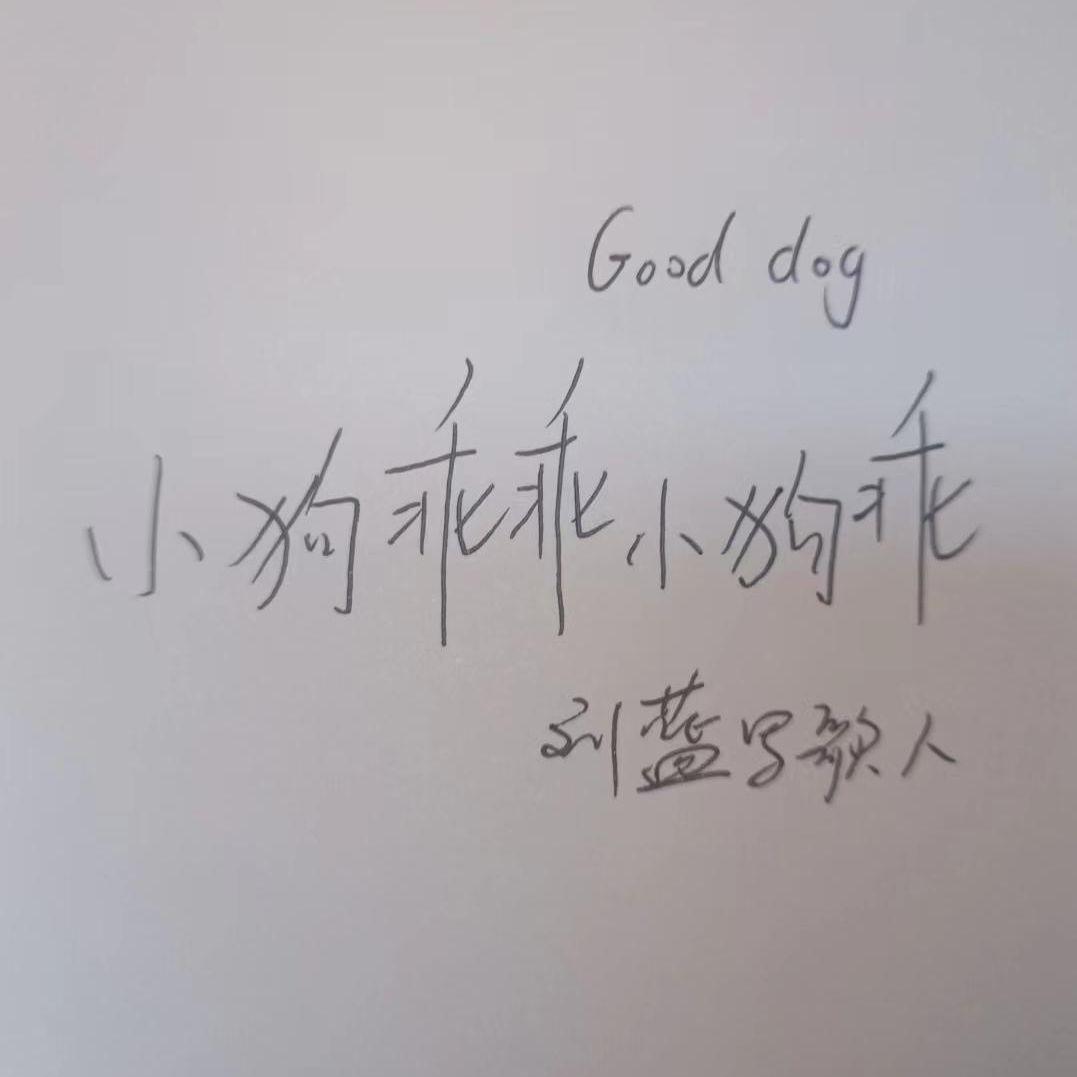 Good dog
小狗乖乖小狗乖
刘蓝写歌人